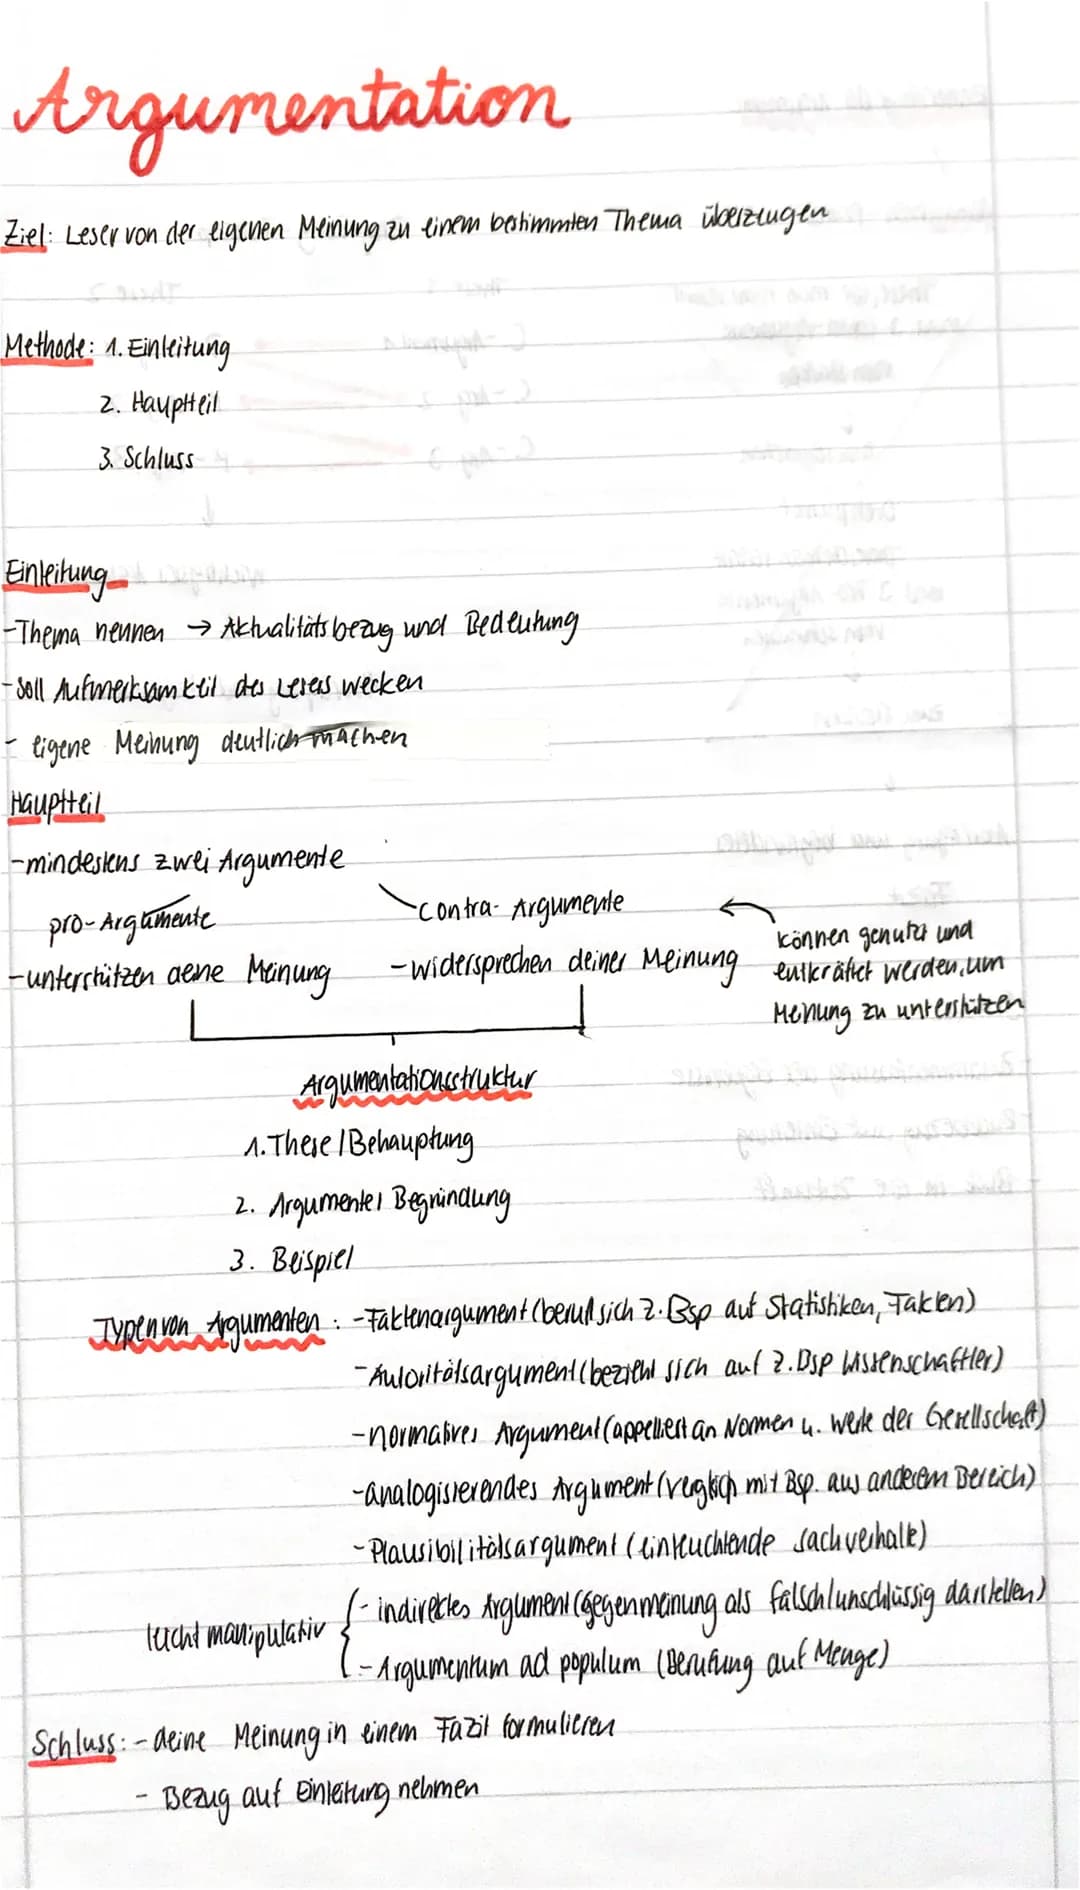 Argumentation
Ziel: Leser von der eigenen Meinung zu einem bestimmten Thema überzeugen
Methode: 1. Einleitung
2. Hauptteil
3. Schluss
Einleitung
-Thema nennen → Aktualitätsbezug und Bedeutung
-soll Aufmerksamkeit des Lesers wecken
- eigene Meinung deutlich machen
Hauptteil
-mindestens zwei Argumente
pro-Argumente
contra-Argumente
-unterstützen deine Meinung
-widersprechen deiner Meinung
können genutzt und
entkräftet werden, um
Meinung zu unterstützen
Argumentationsstruktur
1. These/Behauptung
2. Argumente/Begründung
3. Beispiel
Typen von Argumenten: -Faktenargument (beruft sich z.Bsp auf Statistiken, Fakten)
-Autoritätsargument (bezieht sich auf z.Bsp Wissenschaftler)
-normatives Argument (appelliert an Normen u. Werte der Gesellschaft)
-analogisierendes Argument (verglich mit Bsp. aus anderem Bereich)
-Plausibilitätsargument (einleuchtende Sachverhalte)
leicht manipulativ
- indirektes Argument (Gegenmeinung als falsch/unschlüssig darstellen)
- Argumentum ad populum (Berufung auf Menge)
Schluss: - deine Meinung in einem Fazit formulieren
- Bezug auf Einleitung nehmen